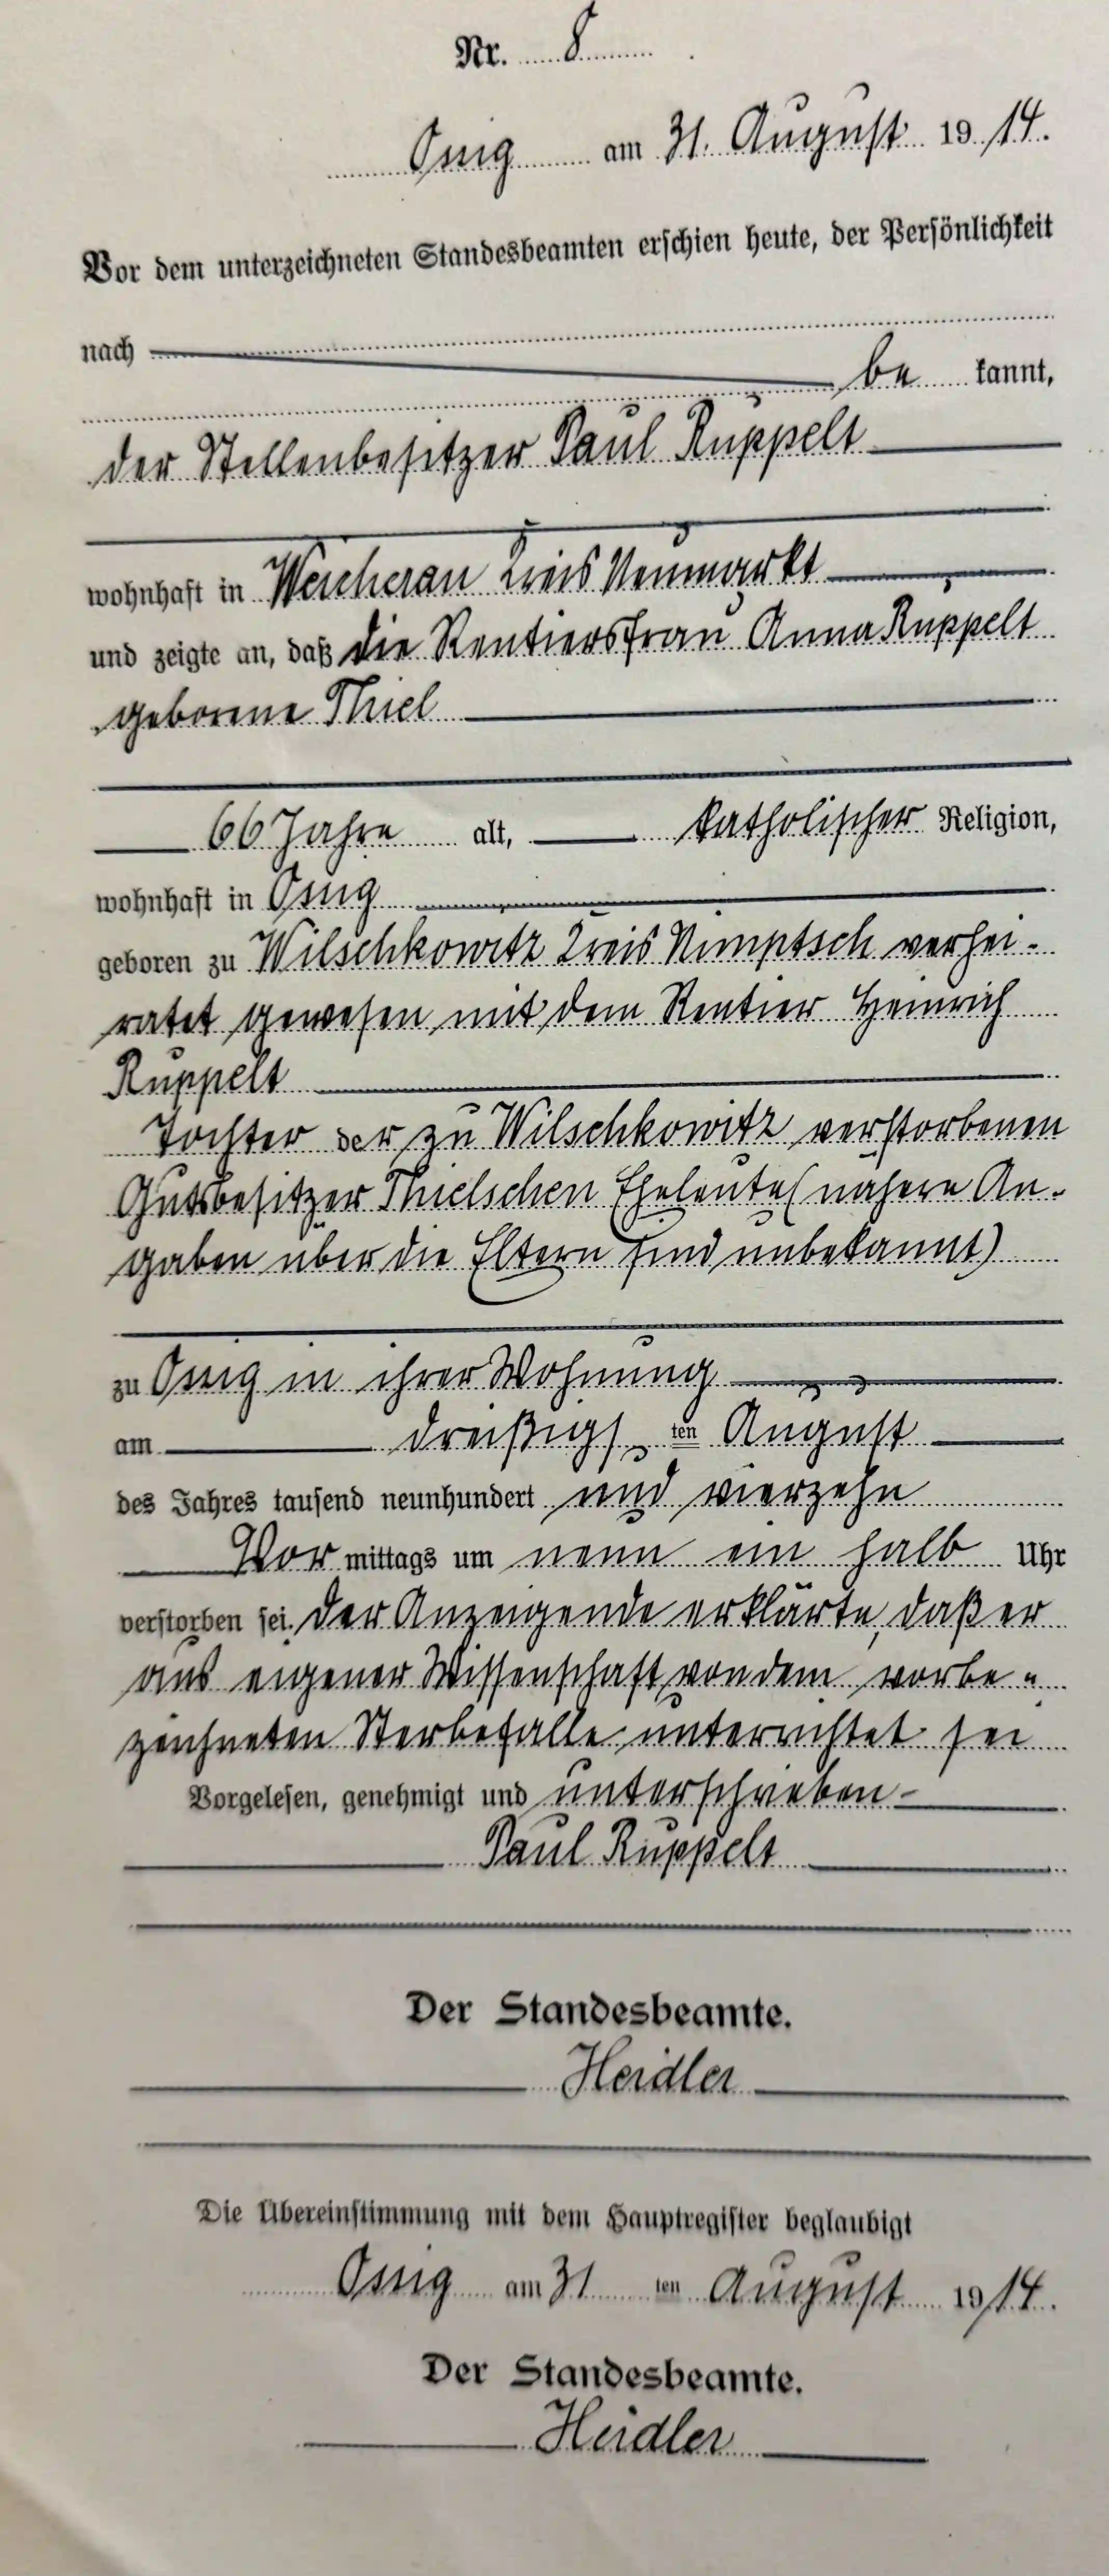 Nr. 8
Ossig am 31. August 1914.
Vor dem unterzeichneten Standesbeamten erschien heute, der Persönlichkeit
nach
be kannt,
der Stellenbesitzer Paul Ruppelt
wohnhaft in Weicherau Kreis Neumarkt
und zeigte an, daß die Rentiersfrau Anna Ruppelt
geborene Thiel
66 Jahre alt, katholischer Religion,
wohnhaft in Ossig
geboren zu Wilschkowitz Kreis Nimptsch verhei-
ratet gewesen mit dem Rentier Heinrich
Ruppelt
Tochter der zu Wilschkowitz verstorbenen
Gutsbesitzer Thielschen Eheleute (nähere An-
gaben über die Eltern sind unbekannt)
zu Ossig in ihrer Wohnung
am dreißigs ten August
des Jahres tausend neunhundert und vierzehn
Vor mittags um neun ein halb Uhr
verstorben sei. Der Anzeigende erklärte, daß er
aus eigener Wissenschaft von dem vorbe-
zeichneten Sterbefalle unterrichtet sei
Vorgelesen, genehmigt und unterschrieben
Paul Ruppelt
Der Standesbeamte.
Heidler
Die Übereinstimmung mit dem Hauptregister beglaubigt
Ossig am 31 ten August 1914.
Der Standesbeamte.
Heidler